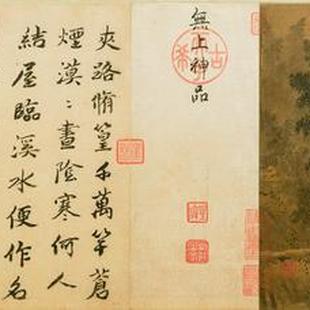 無上神品
夾路脩篁千萬竿蒼
煙漠〻晝陰寒何人
結屋臨溪水便作名